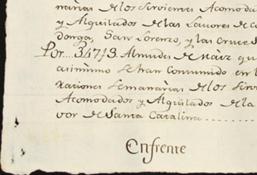 narias de los Sirvientes Acomoda
y Alquilados de las Lavores de Co
donga, San Lorenzo, y las Cruces
Por... 34713 Almudes de Maiz qu
asimismo se han consumido en l
Raciones semanarias de los Sirv
Acomodados y Alquilados de la
vor de Santa Catalina
Enfrente